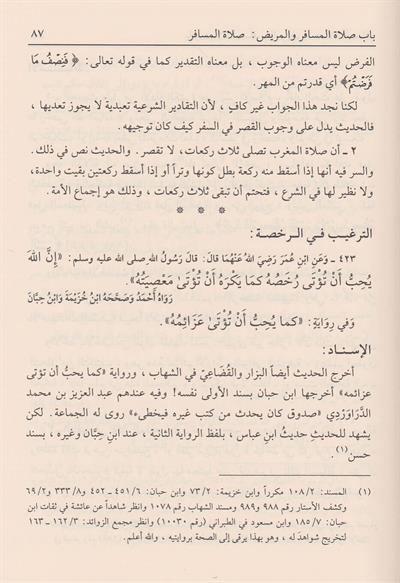 باب صلاة المسافر والمريض: صلاة المسافر ٨٧
الفرض ليس معناه الوجوب ، بل معناه التقدير كما في قوله تعالى: ﴿ فَنِصْفُ مَا
فَرَضْتُمْ﴾ أي قدرتم من المهر.
لكنا نجد هذا الجواب غير كافٍ ، لأن التقادير الشرعية تعبدية لا يجوز تعديها ،
فالحديث يدل على وجوب القصر في السفر كيف كان توجيهه.
٢ ـ أن صلاة المغرب تصلى ثلاث ركعات ، لا تقصر . والحديث نص في ذلك.
والسر فيه أنها إذا أسقط منه ركعة بطل كونها وتراً أو إذا أسقط ركعتين بقيت واحدة،
ولا نظير لها في الشرع ، فتحتم أن تبقى ثلاث ركعات ، وذلك هو إجماع الأمة.
* * *
الترغيب في الرخصة:
٤٢٣ ـ وَعَنِ ابْنِ عُمَرَ رَضِيَ اللهُ عَنْهُمَا قَالَ: قَالَ رَسُولُ اللهِ صلى الله عليه وسلم: «إِنَّ اللَّهَ
يُحِبُّ أَنْ تُؤْتَى رُخَصُهُ كَمَا يَكْرَهُ أَنْ تُؤْتَى مَعْصِيَتُهُ».
رَوَاهُ أَحْمَدُ وَصَحَّحَهُ ابْنُ خُزَيْمَةَ وَابْنُ حِبَّانَ
وَفي رِوَايَةٍ: «كَمَا يُحِبُّ أَنْ تُؤْتَى عَزَائِمُهُ».
الإسناد:
أخرج الحديث أيضاً البزار والقُضَاعِيّ في الشهاب ، ورواية «كما يحبُّ أن تؤتى
عزائمه» أخرجها ابن حبان بسند الأولى نفسه! وفيه عندهم عبد العزيز بن محمد
الدَّرَاوَرْدِي «صدوق كان يحدث من كتب غيره فيخطىء» روى له الجماعة . لكن
يشهد للحديثِ حديثُ ابن عباس ، بلفظ الرواية الثانية ، عند ابن حِبَّان وغيره ، بسند
حسن(١).
(١) المسند: ١٠٨/٢ مكرراً وابن خزيمة: ٧٣/٢ وابن حبان: ٤٥١/٦ ـ ٤٥٢ و ٣٣٣/٨ و ٦٩/٢
وكشف الأستار رقم ٩٨٨ و ٩٨٩ ومسند الشهاب رقم ١٠٧٨ وانظر شاهداً عن عائشة في ثقات ابن
حبان: ١٨٥/٧ وابن مسعود في الطبراني (رقم ١٠٠٣٠) وانظر مجمع الزوائد: ١٦٢/٣ ـ ١٦٣
لتخريج شواهدَ له ، وهو بهذا يرقى إلى الصحة بروايتيه ، والله أعلم.